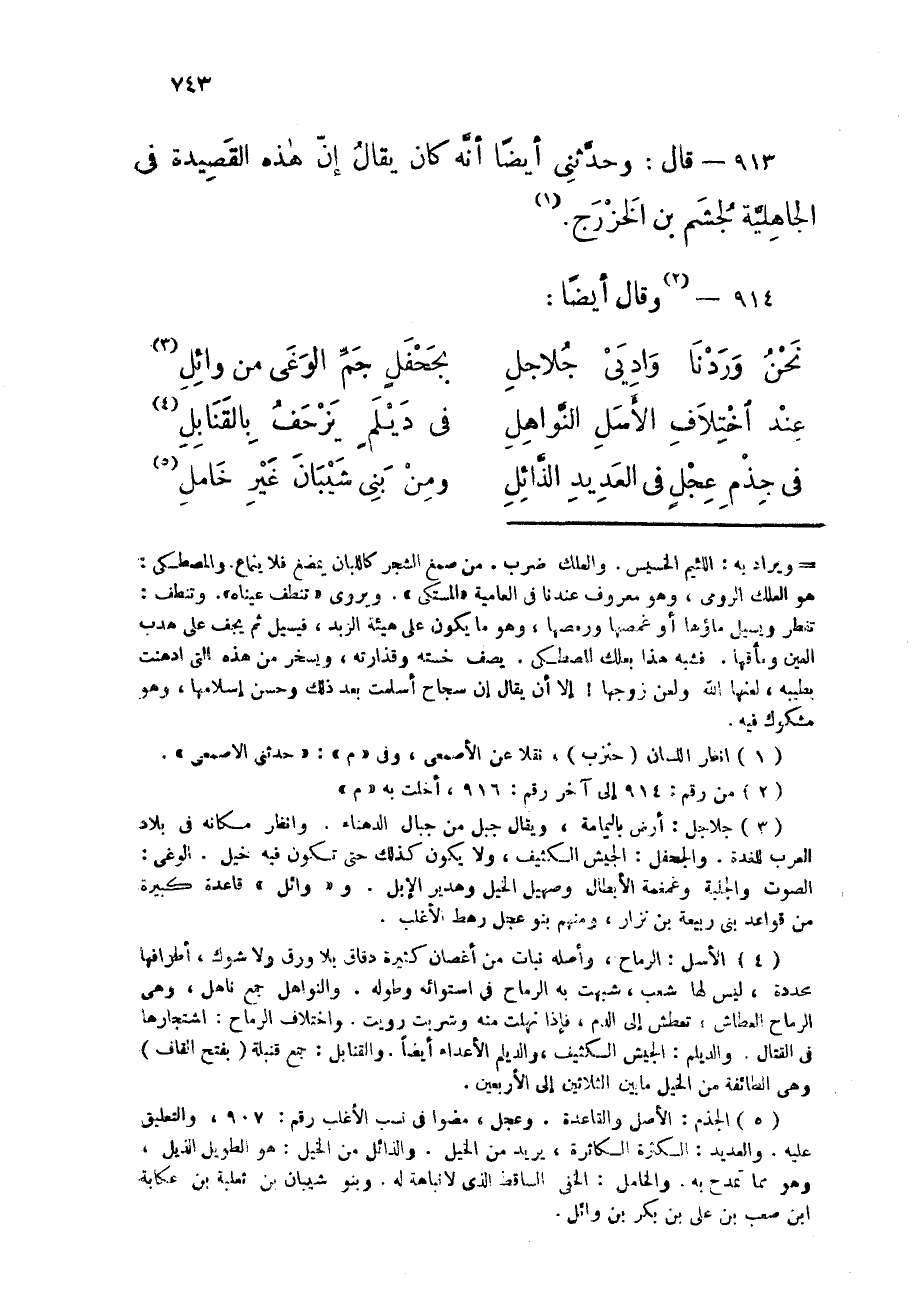 ٧٤٣
٩١٣ – قال : وحدَّثنِى أيضًا أنَّه كان يقالُ إنّ هٰذه القَصِيدة فى
الجاهِليَّة لجُشَم بن الخَزْرَج.(١)
٩١٤ – (٢) وقال أيضًا :
نَحْنُ وَرَدْنَا وَادِيَىْ جُلاجلِ بجَحْفَلٍ جَمِّ الوَغَى من وائلِ(٣)
عِنْد ٱخْتِلاَفِ الأَسَلِ النَّواهِلِ فى دَيْلَمٍ يَزْحَفُ بِالقَنَابِلِ(٤)
فى جِذْمِ عِجْلٍ فى العَدِيدِ الذَّائلِ ومِنْ بَنِى شَيْبَانَ غَيْرِ خَاملِ(٥)
= ويراد به : اللئيم الخسيس . والعلك ضرب . من صمغ الشجر كاللبان يمضغ فلا ينماع. والمصطكى :
هو العلك الرومى ، وهو معروف عندنا فى العامية «المستكى » . ويروى « تنطف عيناه». وتنطف :
تقطر ويسيل ماؤها أو غمصها ورمصها ، وهو ما يكون على هيئة الزبد ، فيسيل ثم يجف على هدب
العين ومأقها . فشبه هذا بعلك المصطكى . يصف خسته وقذارته ، ويسخر من هذه التى ادهنت
بطيبه ، لعنها الله ولعن زوجها ! إلا أن يقال إن سجاح أسلمت بعد ذلك وحسن إسلامها ، وهو
مشكوك فيه .
( ١ ) انظر اللسان ( حنزب ) ، نقلا عن الأصمعى ، وفى « م » : « حدثنى الاصمعى » .
( ٢ ) من رقم : ٩١٤ إلى آخر رقم : ٩١٦ ، أخلت به « م »
( ٣ ) جلاجل : أرض باليمامة ، ويقال جبل من جبال الدهناء . وانظر مكانه فى بلاد
العرب للغدة . والجحفل : الجيش الكثيف ، ولا يكون كذلك حتى تكون فيه خيل . الوغى :
الصوت والجلبة وغمغمة الأبطال وصهيل الخيل وهدير الإبل . و « وائل » قاعدة كبيرة
من قواعد بنى ربيعة بن نزار ، ومنهم بنو عجل رهط الأغلب .
( ٤ ) الأسل : الرماح ، وأصله نبات من أغصان كثيرة دقاق بلا ورق ولا شوك ، أطرافها
محددة ، ليس لها شعب ، شبهت به الرماح فى استوائه وطوله . والنواهل جمع ناهل ، وهى
الرماح العطاش ؛ تعطش إلى الدم ، فإذا نهلت منه وشربت رويت . واختلاف الرماح : اشتجارها
فى القتال . والديلم : الجيش الكثيف ، والديلم الأعداء أيضاً . والقنابل : جمع قنبلة ( بفتح القاف )
وهى الطائفة من الخيل مابين الثلاثين إلى الأربعين .
( ٥ ) الجذم : الأصل والقاعدة . وعجل ، مضوا فى نسب الأغلب رقم : ٩٠٧ ، والتعليق
عليه . والعديد : الكثرة الكاثرة ، يريد من الخيل . والذائل من الخيل : هو الطويل الذيل ،
وهو مما تمدح به . والخامل : الخفى الساقط الذى لا نباهة له . وبنو شيبان بن ثعلبة بن عكابة
ابن صعب بن على بن بكر بن وائل .